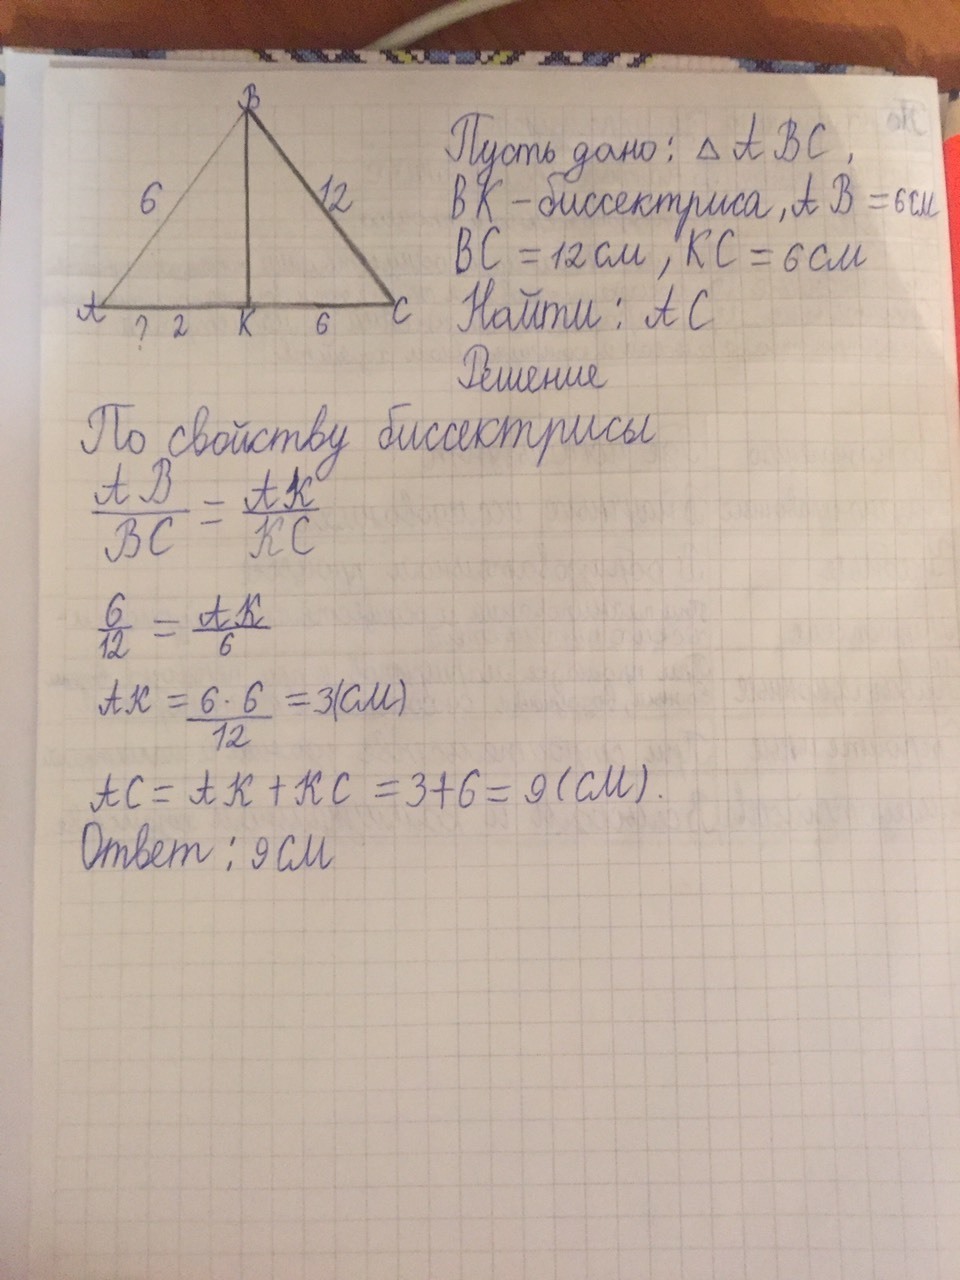 B
6
12
A
? 2
K
6
C
Пусть дано: △ ABC,
BK - биссектриса, AB = 6см
BC = 12 см, KC = 6 см
Найти: AC
Решение
По свойству биссектрисы
AB/BC = AK/KC
6/12 = AK/6
AK = 6·6/12 = 3(см)
AC = AK + KC = 3+6 = 9(см).
Ответ: 9см